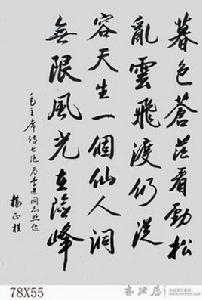 暮色蒼茫看勁松
亂雲飛渡仍從
容天生一個仙人洞
無限風光在險峰
毛主席詩七絕為李進同志題
78X55